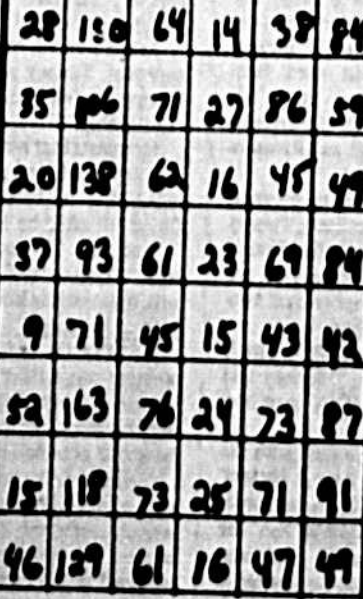 28 64 14 38 84
35 106 71 27 86 59
20 138 62 16 45 49
37 93 61 23 69 84
9 71 45 15 43 42
52 163 76 24 73 87
15 118 73 25 71 91
46 129 61 16 47 49